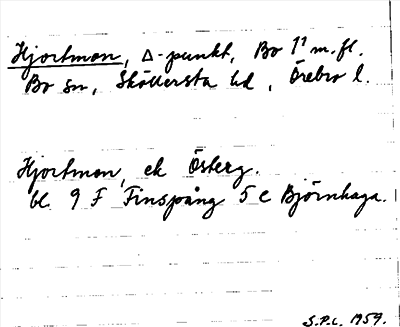 Hjortmon, Δ-punkt, Bo 1¹ m.fl.
Bo sn, Sköllersta hd, Örebro l.
Hjortmon, ek Österg.
bl. 9 F Finspång 5 e Björnhaga.
S.P.L. 1959.